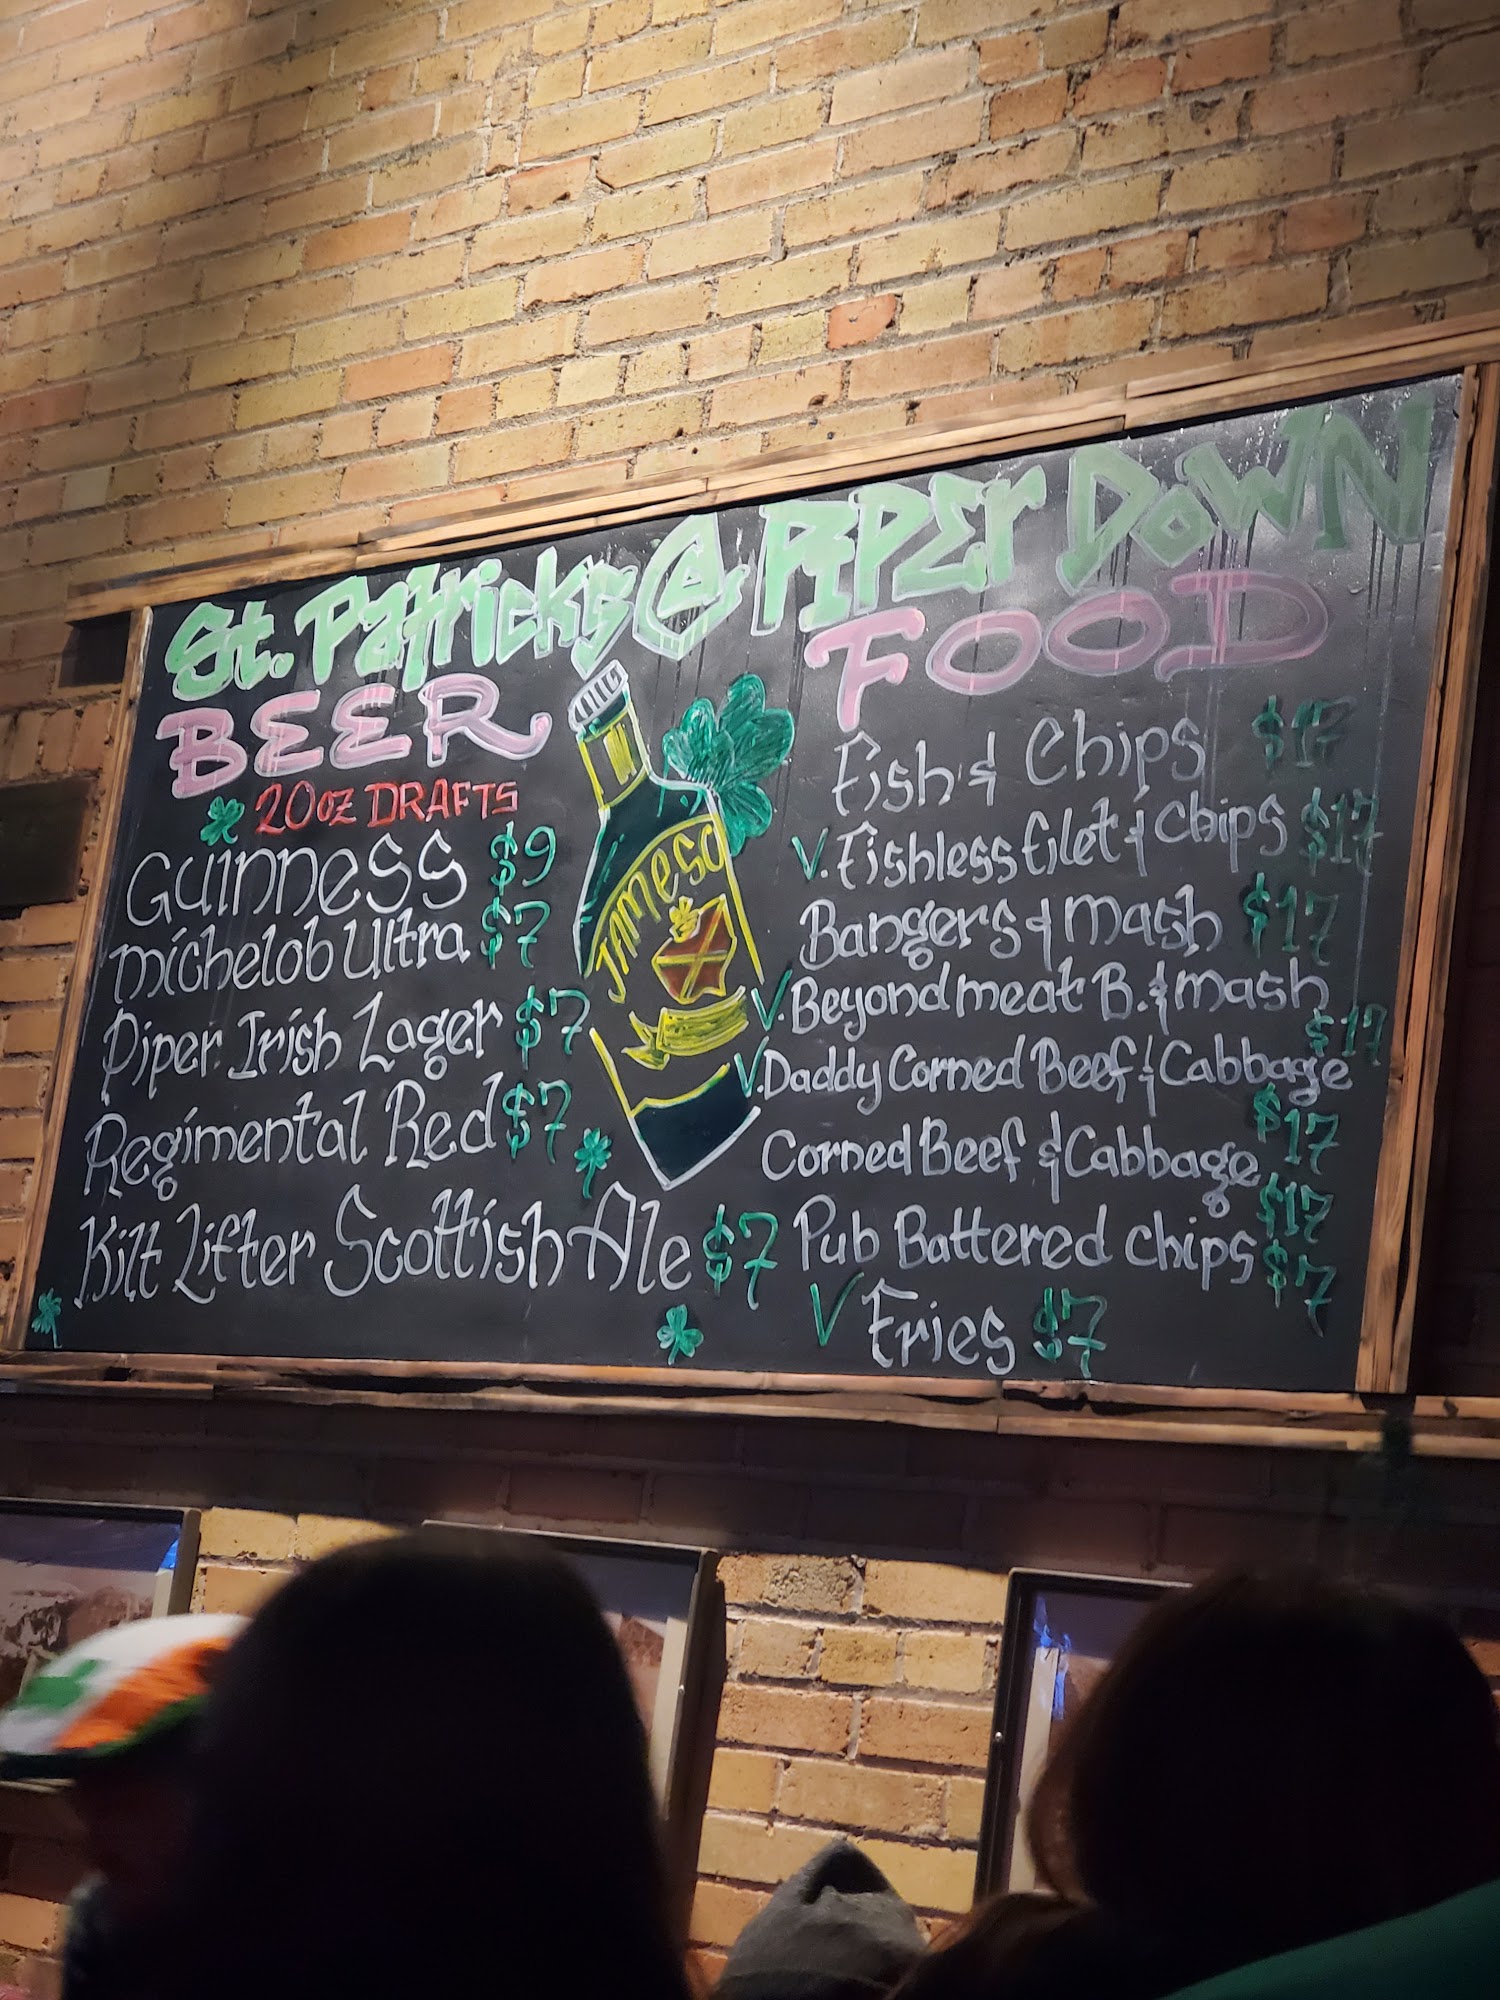 St. Patricks @ PIPER DOWN
BEER
20oz DRAFTS
Guinness $9
Michelob Ultra $7
Piper Irish Lager $7
Regimental Red $7
Kilt Lifter Scottish Ale $7
JAMESO
FOOD
Fish & Chips $17
V. Fishless filet & Chips $17
Bangers & Mash $17
V. Beyond meat B. & Mash $17
V. Daddy Corned Beef & Cabbage $17
Corned Beef & Cabbage $17
Pub Battered Chips $7
V Fries $7